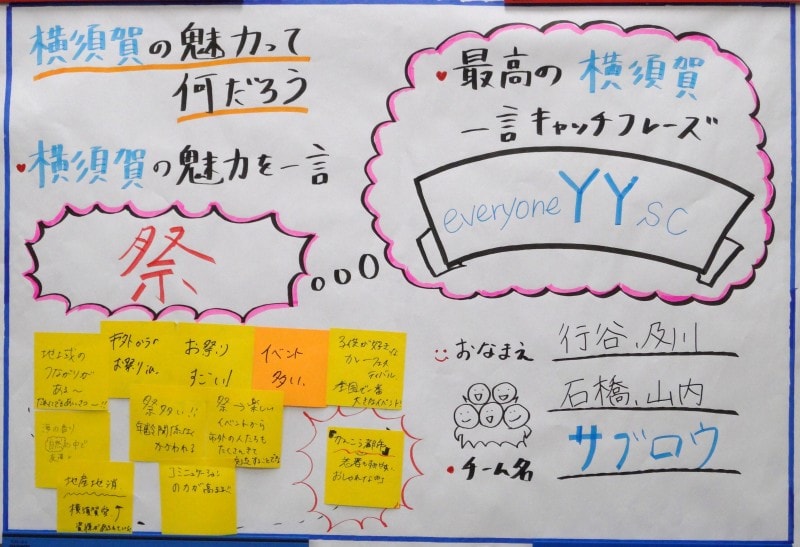 横須賀の魅力って
何だろう
横須賀の魅力を一言
祭
最高の 横須賀
一言キャッチフレーズ
everyone YY sc
地域の
つながりが
ある〜
お祭り
お祭り
すごい!
イベント
多い。
子供が好きな
カレーフェス
ティバル。
全国で一番
大きなイベント!
祭 多い!!
年齢関係なく
かかわれる
祭→楽しい
イベントから
市外の人たちも
たくさんきて
地産地消
横須賀愛
コミュニケーション
の力が高まる
おしゃれな町
おなまえ
行谷、及川
石橋、山内
チーム名
サブロウ